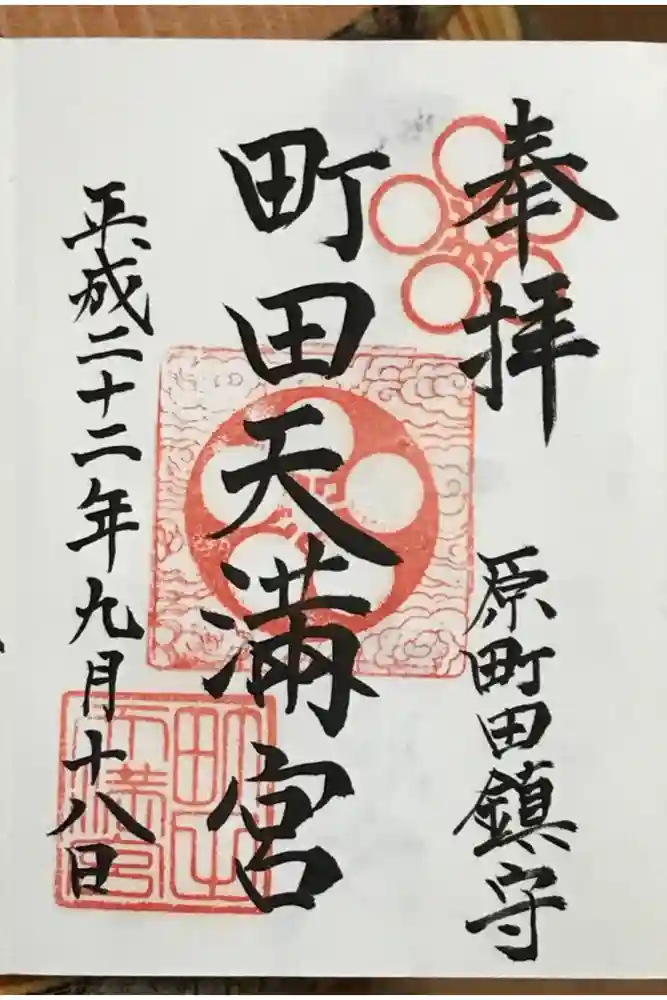 奉拝
原町田鎮守
町田天満宮
平成二十二年九月十八日
町田天満宮